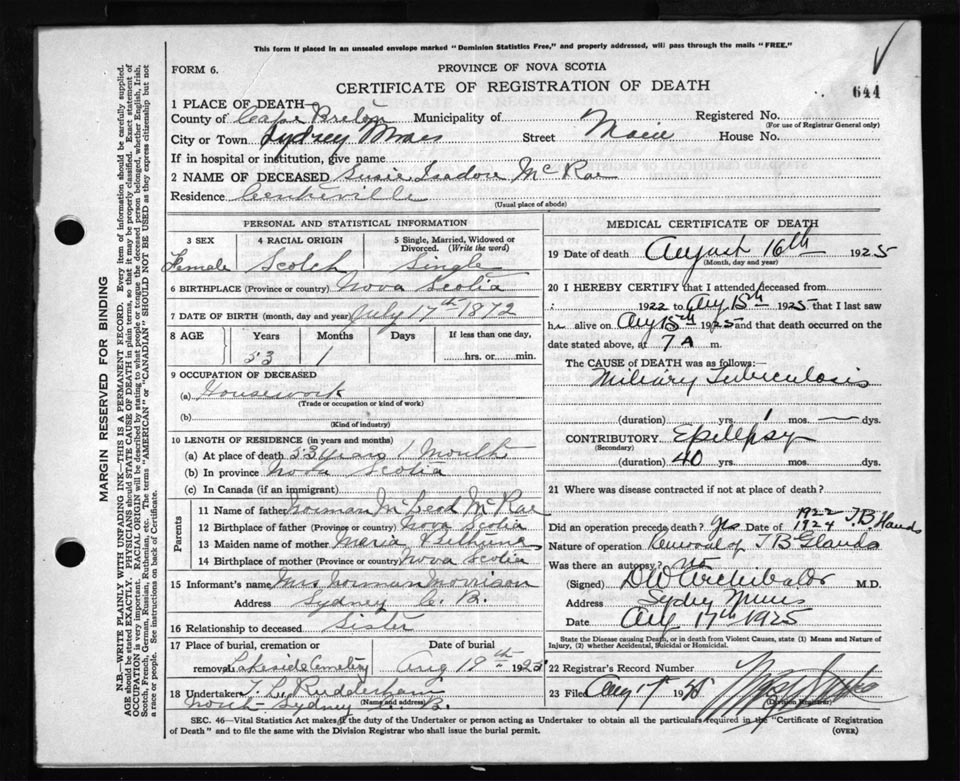 This form if placed in an unsealed envelope marked "Dominion Statistics Free," and properly addressed, will pass through the mails "FREE."
FORM 6.
PROVINCE OF NOVA SCOTIA
CERTIFICATE OF REGISTRATION OF DEATH
644
1 PLACE OF DEATH—
County of Cape Breton Municipality of Registered No.
(For use of Registrar General only)
City or Town Sydney Mines Street Main House No.
If in hospital or institution, give name
2 NAME OF DECEASED Susie Isadore McRae
Residence Centreville
(Usual place of abode)
PERSONAL AND STATISTICAL INFORMATION
3 SEX 4 RACIAL ORIGIN 5 Single, Married, Widowed or Divorced. (Write the word)
Female Scotch Single
6 BIRTHPLACE (Province or country) Nova Scotia
7 DATE OF BIRTH (month, day and year) July 17th 1872
8 AGE Years Months Days If less than one day,
53 1 hrs. or min.
9 OCCUPATION OF DECEASED
(a) Housework
(Trade or occupation or kind of work)
(b)
(Kind of industry)
10 LENGTH OF RESIDENCE (in years and months)
(a) At place of death 53 Years 1 Month
(b) In province Nova Scotia
(c) In Canada (if an immigrant)
Parents
11 Name of father Norman McLeod McRae
12 Birthplace of father (Province or country) Nova Scotia
13 Maiden name of mother Maria Bethune
14 Birthplace of mother (Province or country) Nova Scotia
15 Informant's name Mrs Norman Morrison
Address Sydney C. B.
16 Relationship to deceased Sister
17 Place of burial, cremation or Date of burial
removal Lakeside Cemetery Aug 19th 1925
18 Undertaker T. L. Rudderham
(Name and address)
North Sydney C. B.
MEDICAL CERTIFICATE OF DEATH
19 Date of death August 16th 1925
(Month, day and year)
20 I HEREBY CERTIFY that I attended deceased from
1922 to Aug 15th 1925 that I last saw
her alive on Aug 15th 1925 and that death occurred on
date stated above, at 7 A m.
The CAUSE of DEATH was as follows:—
Miliary Tuberculosis
(duration) yrs. 1 mos. dys.
CONTRIBUTORY Epilepsy
(Secondary)
(duration) 40 yrs. mos. dys.
21 Where was disease contracted if not at place of death?
Did an operation precede death? yes Date of 1922 1924 T.B. Gland
Nature of operation Removal of T B Glands
Was there an autopsy? no
(Signed) D W Archibald M.D.
Address Sydney Mines
Date Aug 17th 1925
State the Disease causing Death, or in death from Violent Causes, state (1) Means and Nature of Injury, (2) whether Accidental, Suicidal or Homicidal.
22 Registrar's Record Number
23 Filed Aug 19 1925
(Division Registrar)
SEC. 46—Vital Statistics Act makes it the duty of the Undertaker or person acting as Undertaker to obtain all the particulars required in the "Certificate of Registration
of Death" and to file the same with the Division Registrar who shall issue the burial permit.
(OVER)
MARGIN RESERVED FOR BINDING
N.B.—WRITE PLAINLY WITH UNFADING INK—THIS IS A PERMANENT RECORD. Every item of information should be carefully supplied.
AGE should be stated EXACTLY. PHYSICIANS should STATE CAUSE OF DEATH in plain terms, so that it may be properly classified. Exact statement of
OCCUPATION is very important. RACIAL ORIGIN will be described by stating to what people or tongue the deceased person belonged, whether English, Irish,
Scotch, French, German, Russian, Ruthenian, etc. The terms "AMERICAN" or "CANADIAN" SHOULD NOT BE USED as they express citizenship but not
a race or people. See instructions on back of Certificate.